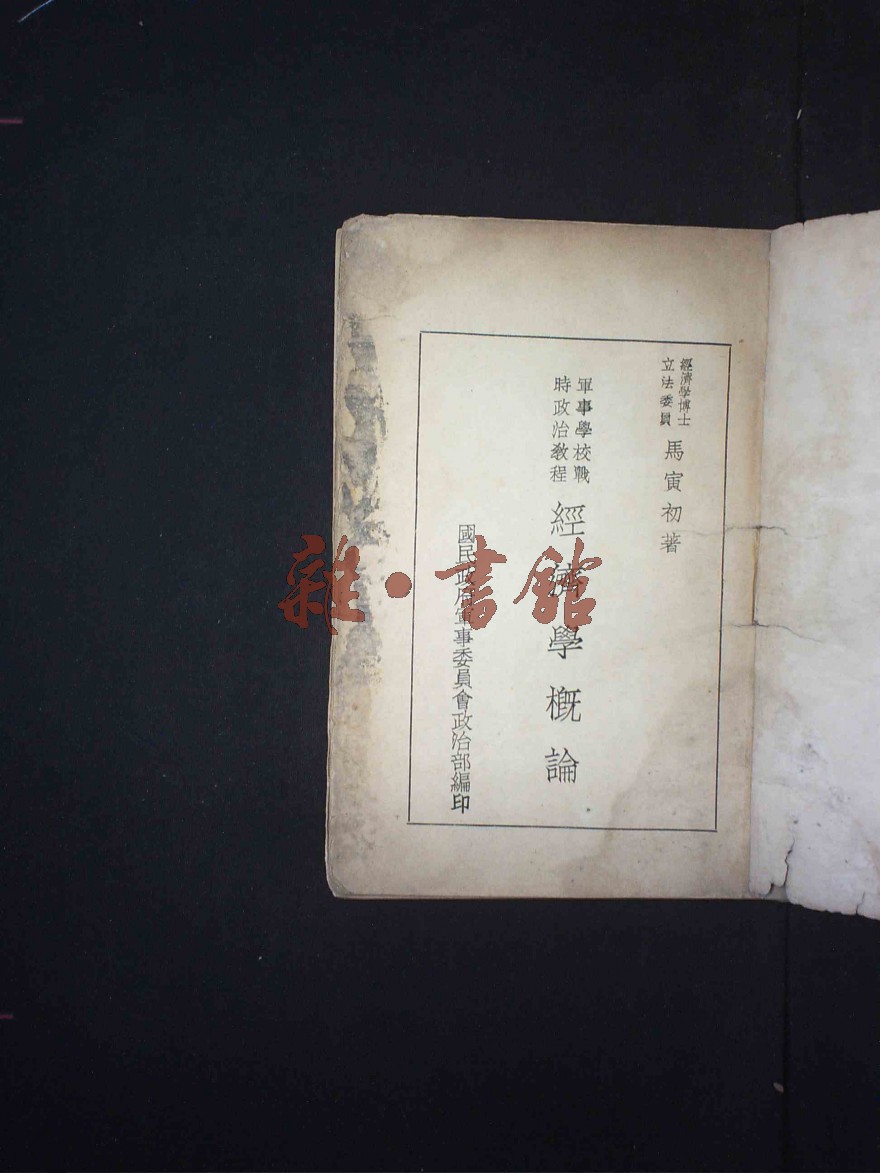 經濟学博士
立法委員
馬寅初著
軍事學校戰
時政治教程
經濟學概論
國民政府軍事委員會政治部編印
雜·書館